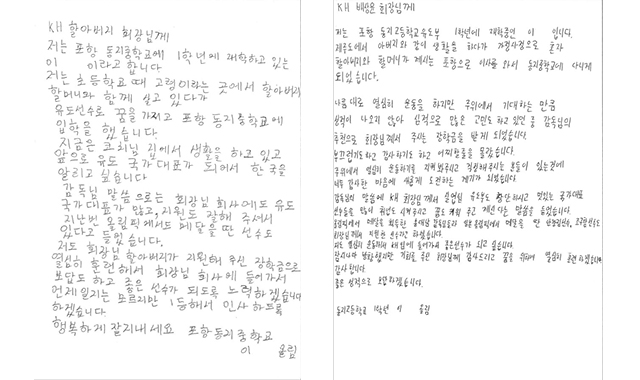 KH 할아버지 회장님께
저는 포항 동지중학교에 1학년에 재학하고 있는
이 이라고 합니다
저는 초등학교 때 고령이라는 곳에서 할아버지
할머니와 함께 살고 있다가
유도선수로 꿈을 가지고 포항 동지중학교에
입학을 했습니다.
지금은 코치님 집에서 생활을 하고 있고
앞으로 유도 국가대표가 되어서 한국을
알리고 싶습니다
감독님 말씀으로는 회장님 회사에도 유도
국가대표가 많고, 지원도 잘해 주셔서
지난번 올림픽에서도 메달을 딴 선수도
있다고 들었습니다.
저도 회장님 할아버지가 지원해 주신 장학금으로
열심히 훈련해서 회장님 회사에 들어가서
보답도 하고 좋은 선수가 되도록 노력하겠습니다
언제일지는 모르지만 1등해서 인사하도록
하겠습니다.
행복하게 잘지내세요 포항동지중학교
이 올림
KH 배상윤 회장님께
저는 포항 동지고등학교 유도부 1학년에 재학중인 이 입니다.
제주도에서 아버지와 같이 생활을 하다가 가정사정으로 혼자
할아버지와 할머니가 계시는 포항으로 이사를 와서 동지중학교에 다니게
되었습니다.
나름대로 열심히 운동을 하지만 주위에서 기대하는 만큼
성적이 나오지 않아 심적으로 많은 고민도하고 있던 중 감독님의
추천으로 회장님께서 주시는 장학금을 받게 되었습니다.
부끄럽기도하고 감사하기도 하고 어찌할줄 몰랐습니다.
주위에서 열심히 운동하라고 지켜봐주시고 걱정해주시는 분들이 있는것에
너무 감사한 마음에 새롭게 도전하는 계기가 되었습니다.
감독님의 말씀에 KH 회장님께서 운영하는 유도부도 있으시고 멋있는 국가대표
선수들을 많이 육성도 시켜주시고 꿈도 키워 주고 계신다는 말씀을 들었습니다.
회장님께서 주신 관심으로 좋은 선수가 되겠습니다.
감사합니다
좋은 성적으로 보답하겠습니다.
동지고등학교 1학년 이 올림